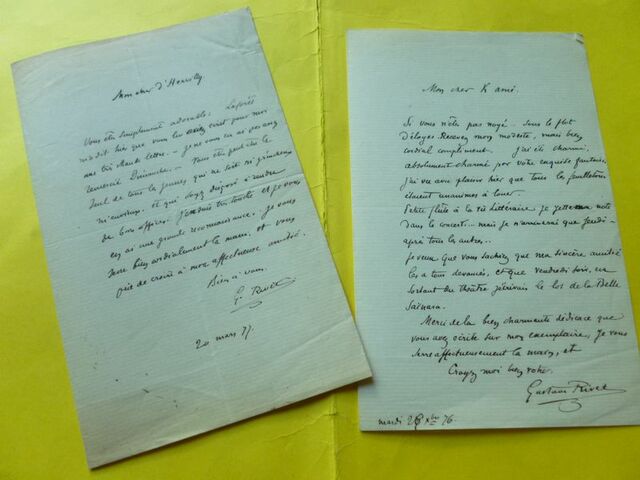 Mon cher d'Hervilly,
Vous êtes simplement adorable. Lafont
m'a dit hier que vous lui aviez écrit pour moi
une très chaude lettre. Je vous en ai
remercié Dimanche. Vous êtes peut-être le
seul de tous les jeunes, qui ne soit ni grincheux
ni envieux, et qui soyez disposé à rendre
de bons offices. J'en suis très touché et je vous
en ai une grande reconnaissance. Je vous
serre bien cordialement la main, et vous
prie de croire à mon affectueuse amitié
Bien à vous.
G. Rivet
20 mars 77.
Mon cher ami.
Si vous n'êtes pas noyé sous le flot
d'éloges Recevez mon modeste, mais bien
cordial compliment. J'ai été charmé,
absolument charmé par votre exquise fantaisie.
J'ai vu avec plaisir hier que tous les feuilletons
étaient unanimes à louer.
Petite flûte à la Vie Littéraire je jetterai ma note
dans le concert... mais je n'arriverai que jeudi
après tous les autres...
Je veux que vous sachiez que ma sincère amitié
les a tous devancés, et que vendredi soir, en
sortant du théâtre j'écrivais le los de la Belle
Saïnara.
Merci de la bien charmante dédicace que
vous avez écrite sur mon exemplaire, Je vous
serre affectueusement la main, et
Croyez moi bien votre.
Gustave Rivet
mardi 26 Xbre 76.